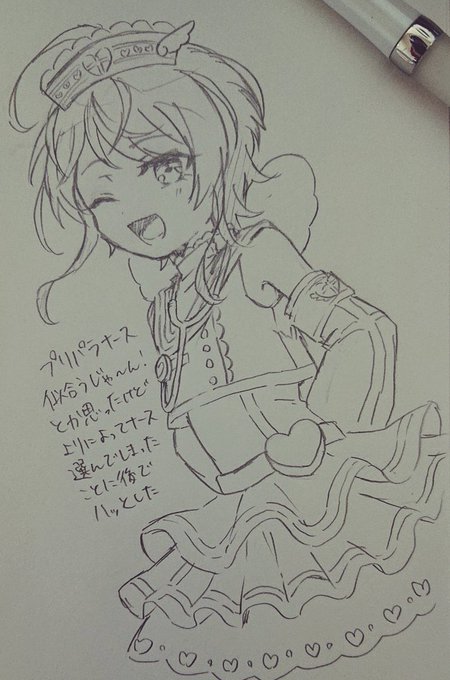 プリパラナース
似合うじゃ〜ん!
とか思ったけど
よりによってナース
選んでしまった
ことに後で
ハッとした